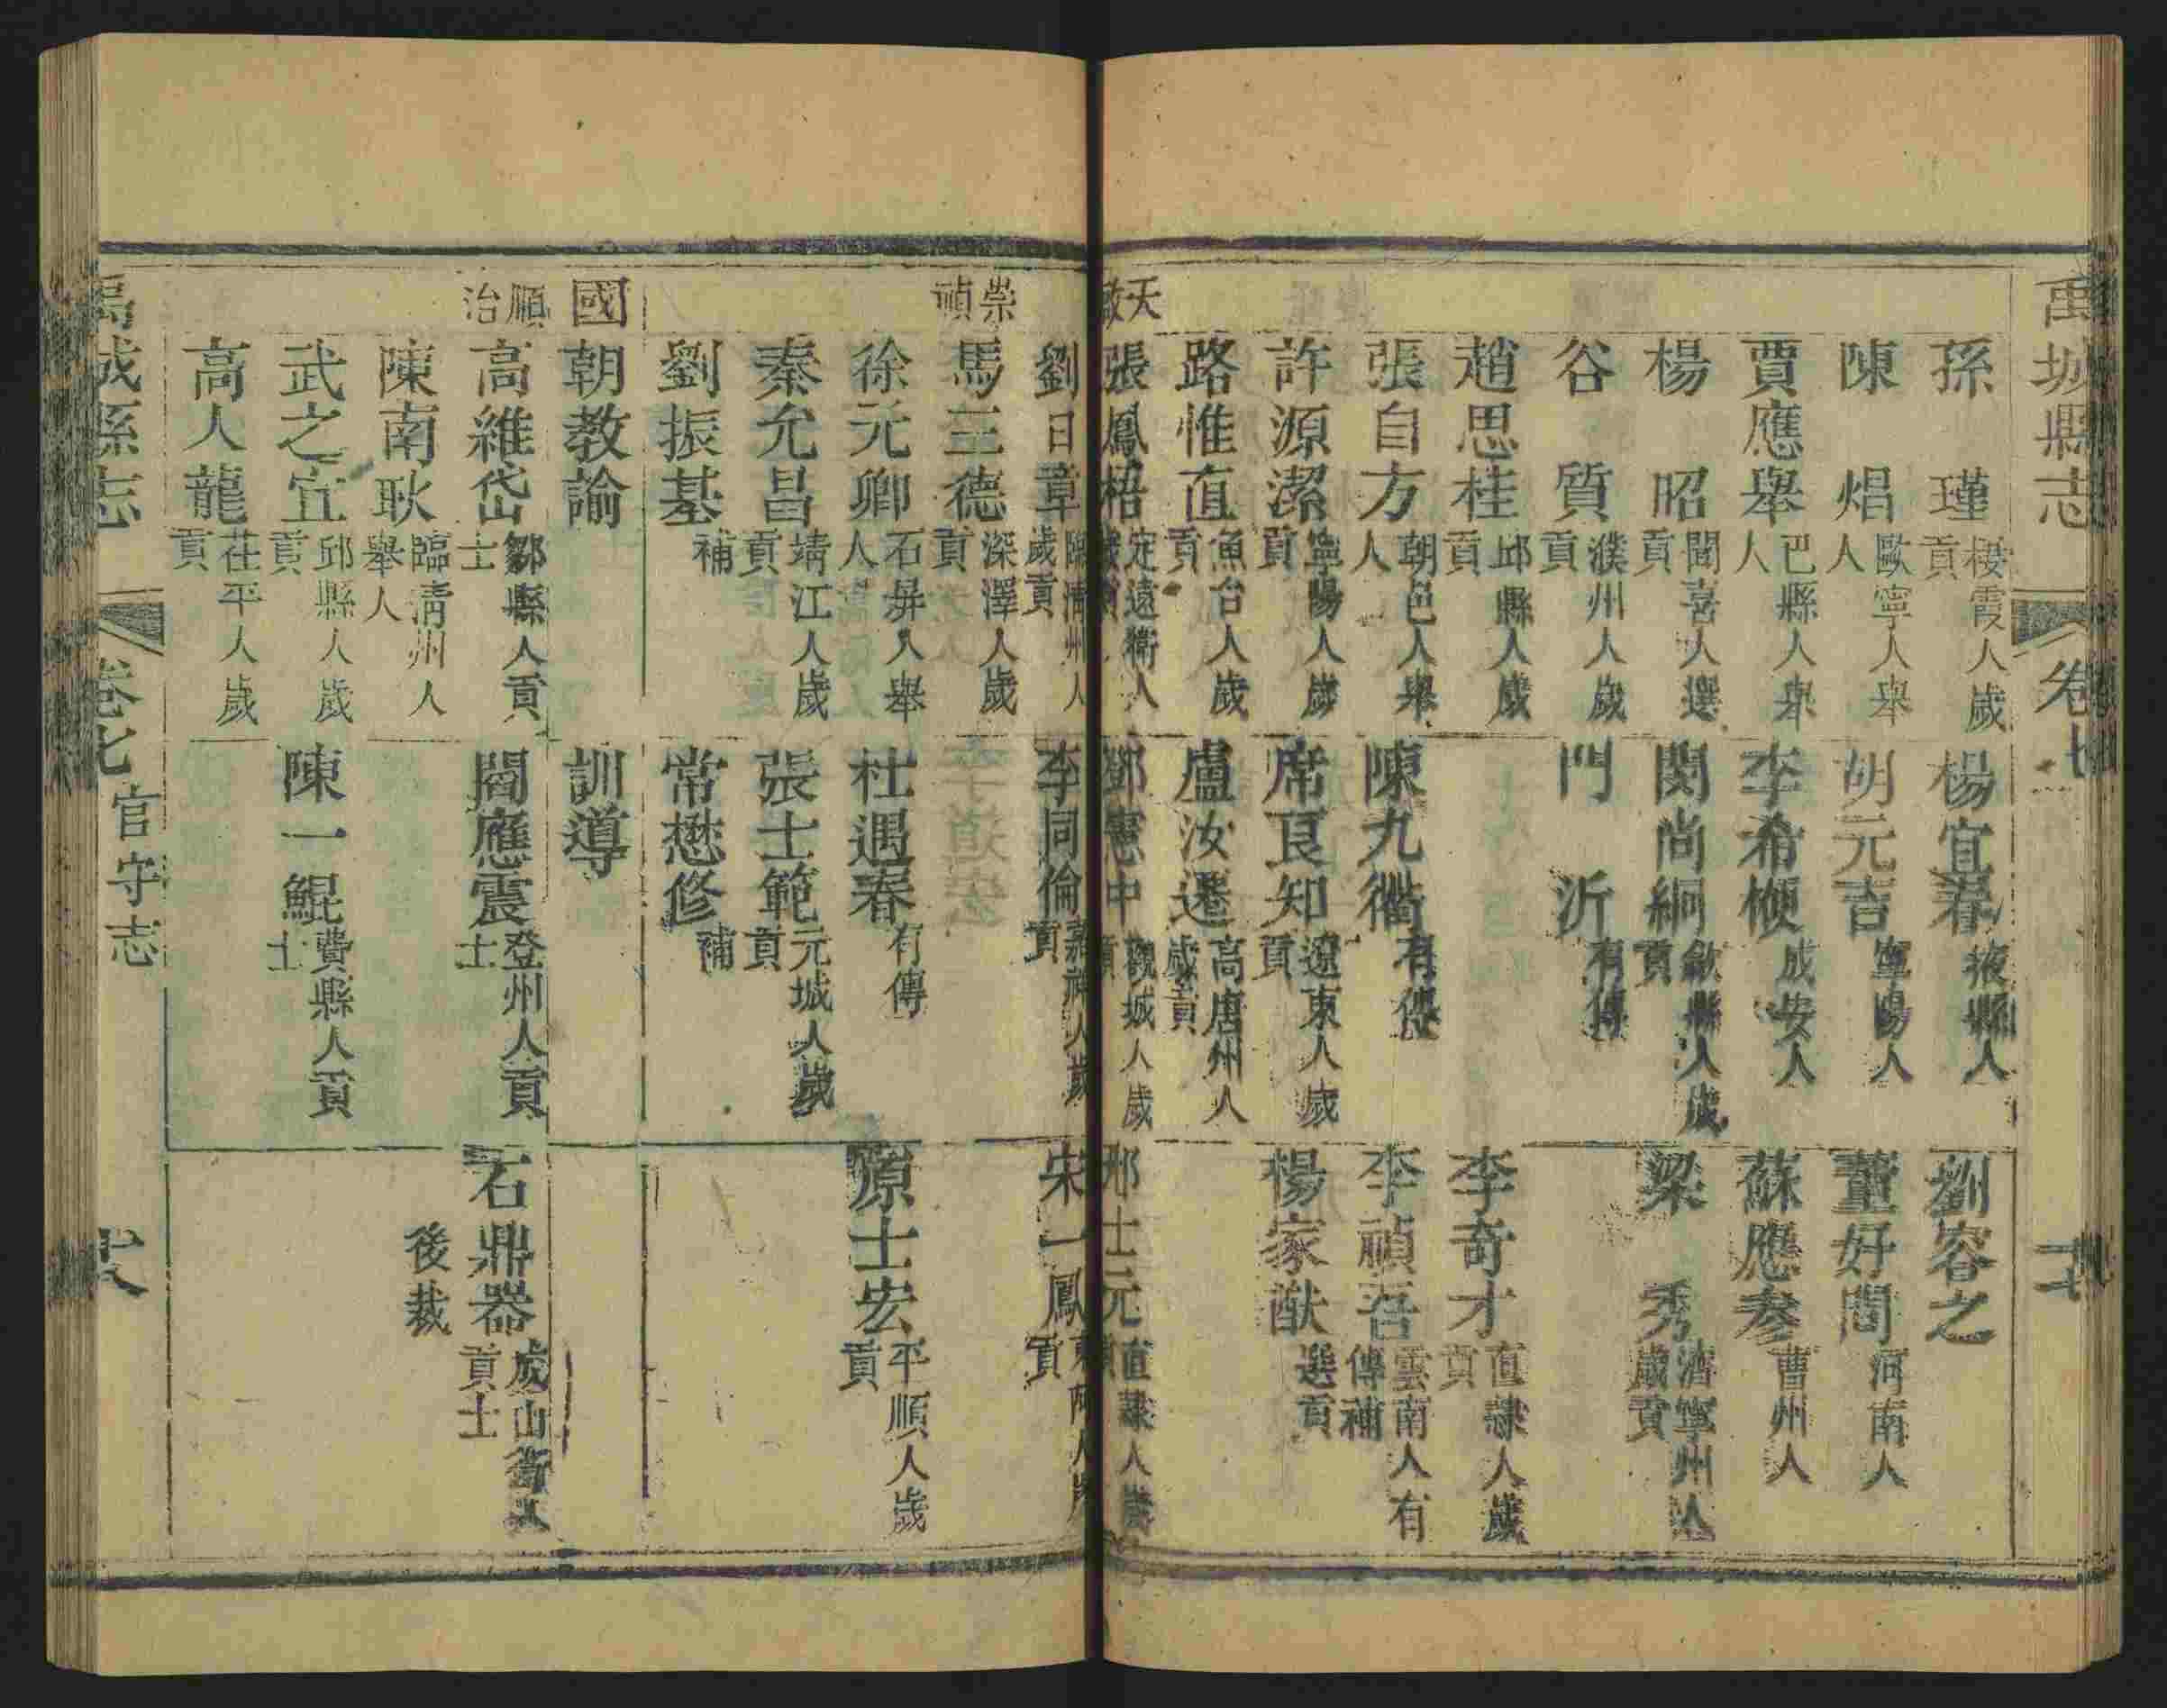 禹城縣志
卷七
十七
孫瑾 棲霞人歲貢
楊宜春 掖縣人
劉容之
陳焻 歐寧人舉人
胡元吉 寧陽人
董好問 河南人
賈應舉 巴縣人舉人
李希楩 成安人
蘇應參 曹州人
楊昭 聞喜人選貢
閔尚絅 歙縣人歲貢
梁秀 濟寧州人歲貢
谷質 濮州人歲貢
門沂 有傳
趙思桂 邱縣人歲貢
李奇才 直隸人歲貢
張自方 朝邑人舉人
陳九衢 有傳
李禎吾 雲南人有傳補
許源潔 寧陽人歲貢
席良知 遼東人歲貢
楊家猷 選貢
路惟直 魚台人歲貢
盧汝遷 高唐州人歲貢
天啟
張鳳梧 定遠衛人歲貢
鄧憲中 觀城人歲貢
邢士元 直隸人歲貢
劉日章 臨清州人歲貢
李同倫 人歲貢
宋一鳳 東阿人歲貢
崇禎
馬三德 深澤人歲貢
徐元卿 石屏人舉人
杜遇春 有傳
原士宏 平順人歲貢
秦允昌 靖江人歲貢
張士範 元城人歲貢
劉振基 補
常懋修 補
國朝教諭
訓導
順治
高維岱 鄒縣人貢士
閻應震 登州人貢士
石鼎器 成山衛人貢士
陳南耿 臨清州人舉人
後裁
武之宜 邱縣人歲貢
陳一鯤 費縣人貢士
高人龍 茌平人歲貢
禹城縣志
卷七
官守志
十八